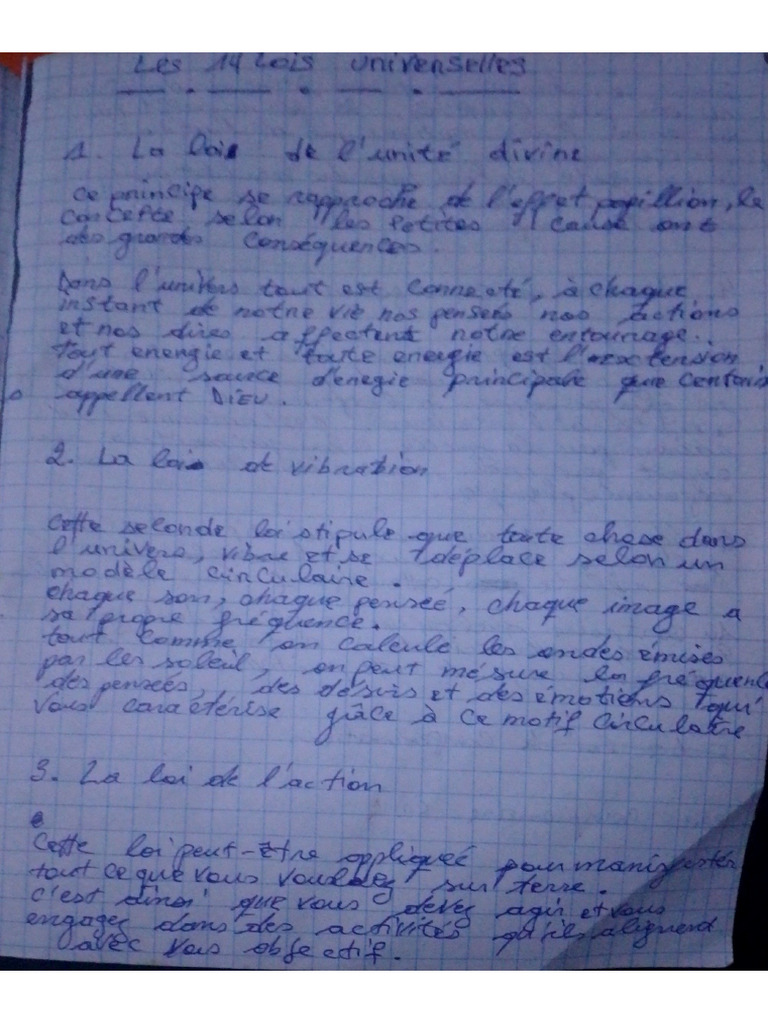 Les 14 Lois universelles
1. La loi de l'unité divine
Ce principe se rapproche de l'effet papillion, le
concepte selon les petites cause ont
des grandes conséquences.
Dans l'univers tout est connecté, à chaque
instant de notre vie nos pensers nos actions
et nos dires affectent notre entourage.
Tout energie et toute energie est l'extension
d'une source d'enegie principale que certains
appellent DIEU.
2. La loi de vibration
Cette seconde loi stipule que toute chose dans
l'univers, vibre et se déplace selon un
modèle circulaire.
chaque son, chaque penseé, chaque image a
sa propre fréquence.
tout comme on calculé les ondes émises
par les soleil, on peut mésure la fréquence
des pensées, des désirs et des émotions qui
vous caractérise grâce à ce motif circulaire
3. La loi de l'action
Cette loi peut-être appliqueé pour manisfester
tout ce que vous voulez sur terre.
c'est ainsi que vous devez agir et vous
engagez dans des activités qu'ils alignend
avec vos objectif.